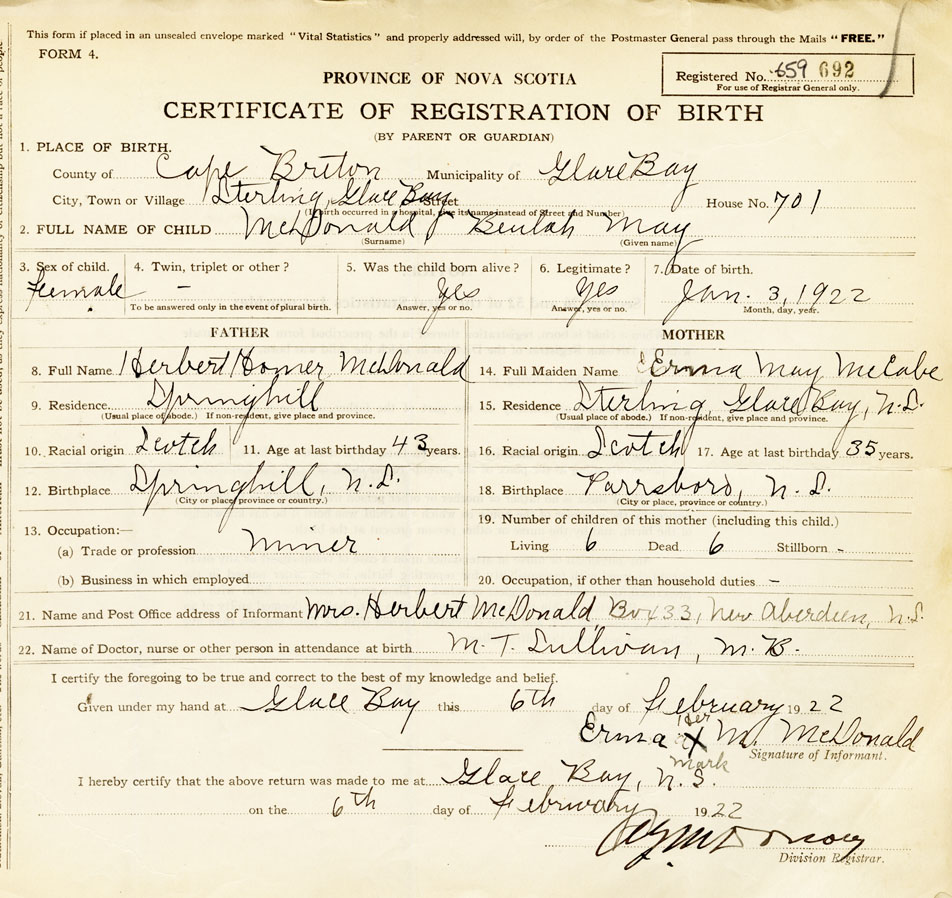 This form if placed in an unsealed envelope marked "Vital Statistics" and properly addressed will, by order of the Postmaster General pass through the Mails "FREE."
FORM 4.
Registered No. 659 692
For use of Registrar General only.
PROVINCE OF NOVA SCOTIA
CERTIFICATE OF REGISTRATION OF BIRTH
(BY PARENT OR GUARDIAN)
1. PLACE OF BIRTH.
County of Cape Breton Municipality of Glace Bay
City, Town or Village Sterling, Glace Bay Street House No. 701
(If birth occurred in a hospital, give its name instead of Street and Number)
2. FULL NAME OF CHILD McDonald Beulah May
(Surname) (Given name)
3. Sex of child. 4. Twin, triplet or other? 5. Was the child born alive? 6. Legitimate? 7. Date of birth.
female - yes yes Jan. 3, 1922
To be answered only in the event of plural birth. Answer, yes or no. Answer, yes or no. Month, day, year.
FATHER MOTHER
8. Full Name Herbert Homer McDonald 14. Full Maiden Name Erma May McCabe
9. Residence Springhill 15. Residence Sterling, Glace Bay, N.S.
(Usual place of abode.) If non-resident, give place and province. (Usual place of abode.) If non-resident, give place and province.
10. Racial origin Scotch 11. Age at last birthday 43 years. 16. Racial origin Scotch 17. Age at last birthday 35 years.
12. Birthplace Springhill, N.S. 18. Birthplace Parrsboro, N.S.
(City or place, province or country.) (City or place, province or country.)
13. Occupation:— 19. Number of children of this mother (including this child.)
(a) Trade or profession miner Living 6 Dead 6 Stillborn -
(b) Business in which employed 20. Occupation, if other than household duties -
21. Name and Post Office address of Informant Mrs. Herbert McDonald Box 433, New Aberdeen, N.S.
22. Name of Doctor, nurse or other person in attendance at birth M. T. Sullivan, M.B.
I certify the foregoing to be true and correct to the best of my knowledge and belief.
Given under my hand at Glace Bay this 6th day of February 1922
Erma her X mark M. McDonald
Signature of Informant.
I hereby certify that the above return was made to me at Glace Bay, N.S.
on the 6th day of February 1922
Division Registrar.